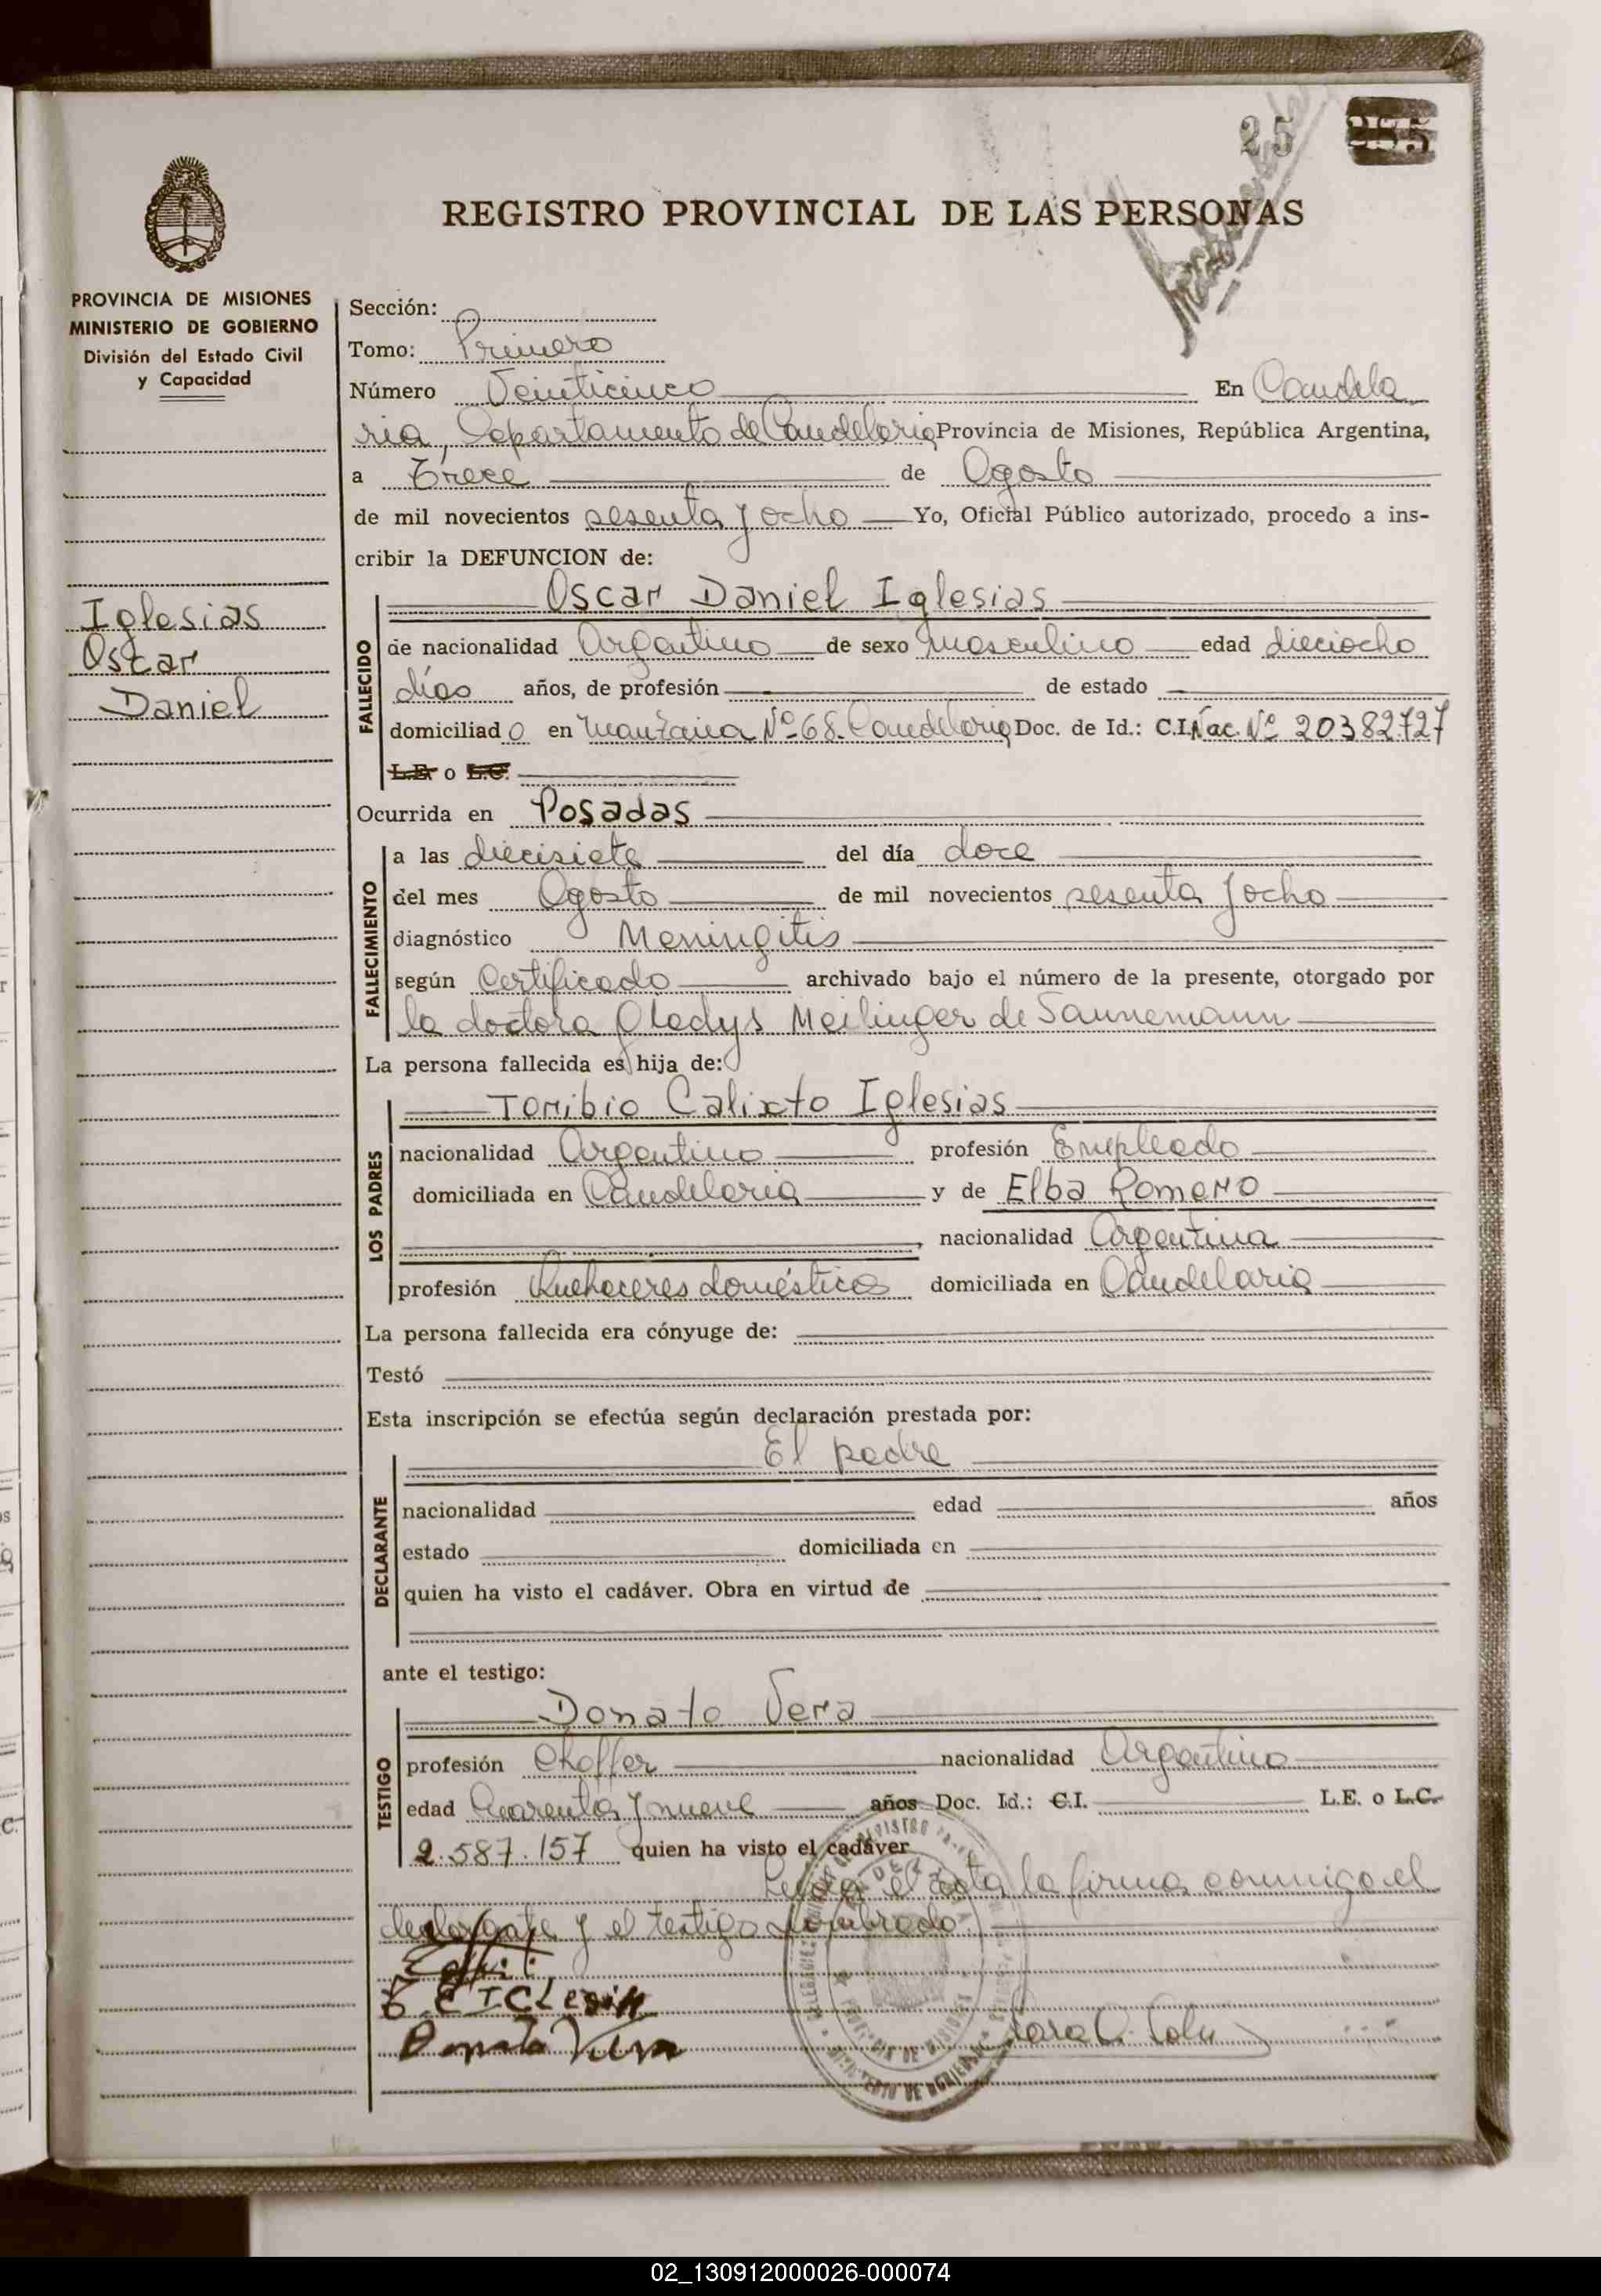 25
REGISTRO PROVINCIAL DE LAS PERSONAS
PROVINCIA DE MISIONES
MINISTERIO DE GOBIERNO
División del Estado Civil
y Capacidad
Iglesias
Oscar
Daniel
Sección:
Tomo: Primero
Número Veinticinco En Candela
ria, Departamento de Candelaria Provincia de Misiones, República Argentina,
a Trece de Agosto
de mil novecientos sesenta y ocho Yo, Oficial Público autorizado, procedo a ins-
cribir la DEFUNCION de:
FALLECIDO
Oscar Daniel Iglesias
de nacionalidad Argentino de sexo masculino edad dieciocho
días años, de profesión de estado
domiciliado en Manzana Nº 68. Candelaria Doc. de Id.: C.I. Nac. Nº 20382727
L.E. o L.C.
Ocurrida en Posadas
FALLECIMIENTO
a las diecisiete del día doce
del mes Agosto de mil novecientos sesenta y ocho
diagnóstico Meningitis
según Certificado archivado bajo el número de la presente, otorgado por
la doctora Gladys Meilinger de Sannemann
La persona fallecida es hija de:
LOS PADRES
Toribio Calixto Iglesias
nacionalidad Argentino profesión Empleado
domiciliada en Candelaria y de Elba Romero
nacionalidad Argentina
profesión Quehaceres domésticos domiciliada en Candelaria
La persona fallecida era cónyuge de:
Testó
Esta inscripción se efectúa según declaración prestada por:
DECLARANTE
El padre
nacionalidad edad años
estado domiciliada en
quien ha visto el cadáver. Obra en virtud de
ante el testigo:
TESTIGO
Donato Vera
profesión Choffer nacionalidad Argentino
edad Cuarenta y nueve años Doc. Id.: C.I. L.E. o L.C.
2.587.157 quien ha visto el cadáver
Leída el acta la firma conmigo el
declarante y el testigo nombrado.
Donato Vera
02_130912000026-000074